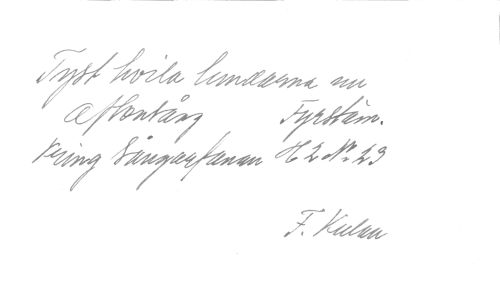 Tyst hvila lundarna nu
Aftonsång Fyrstäm.
Kring Sångarfanan H 2 No. 23
F. Kuhlau